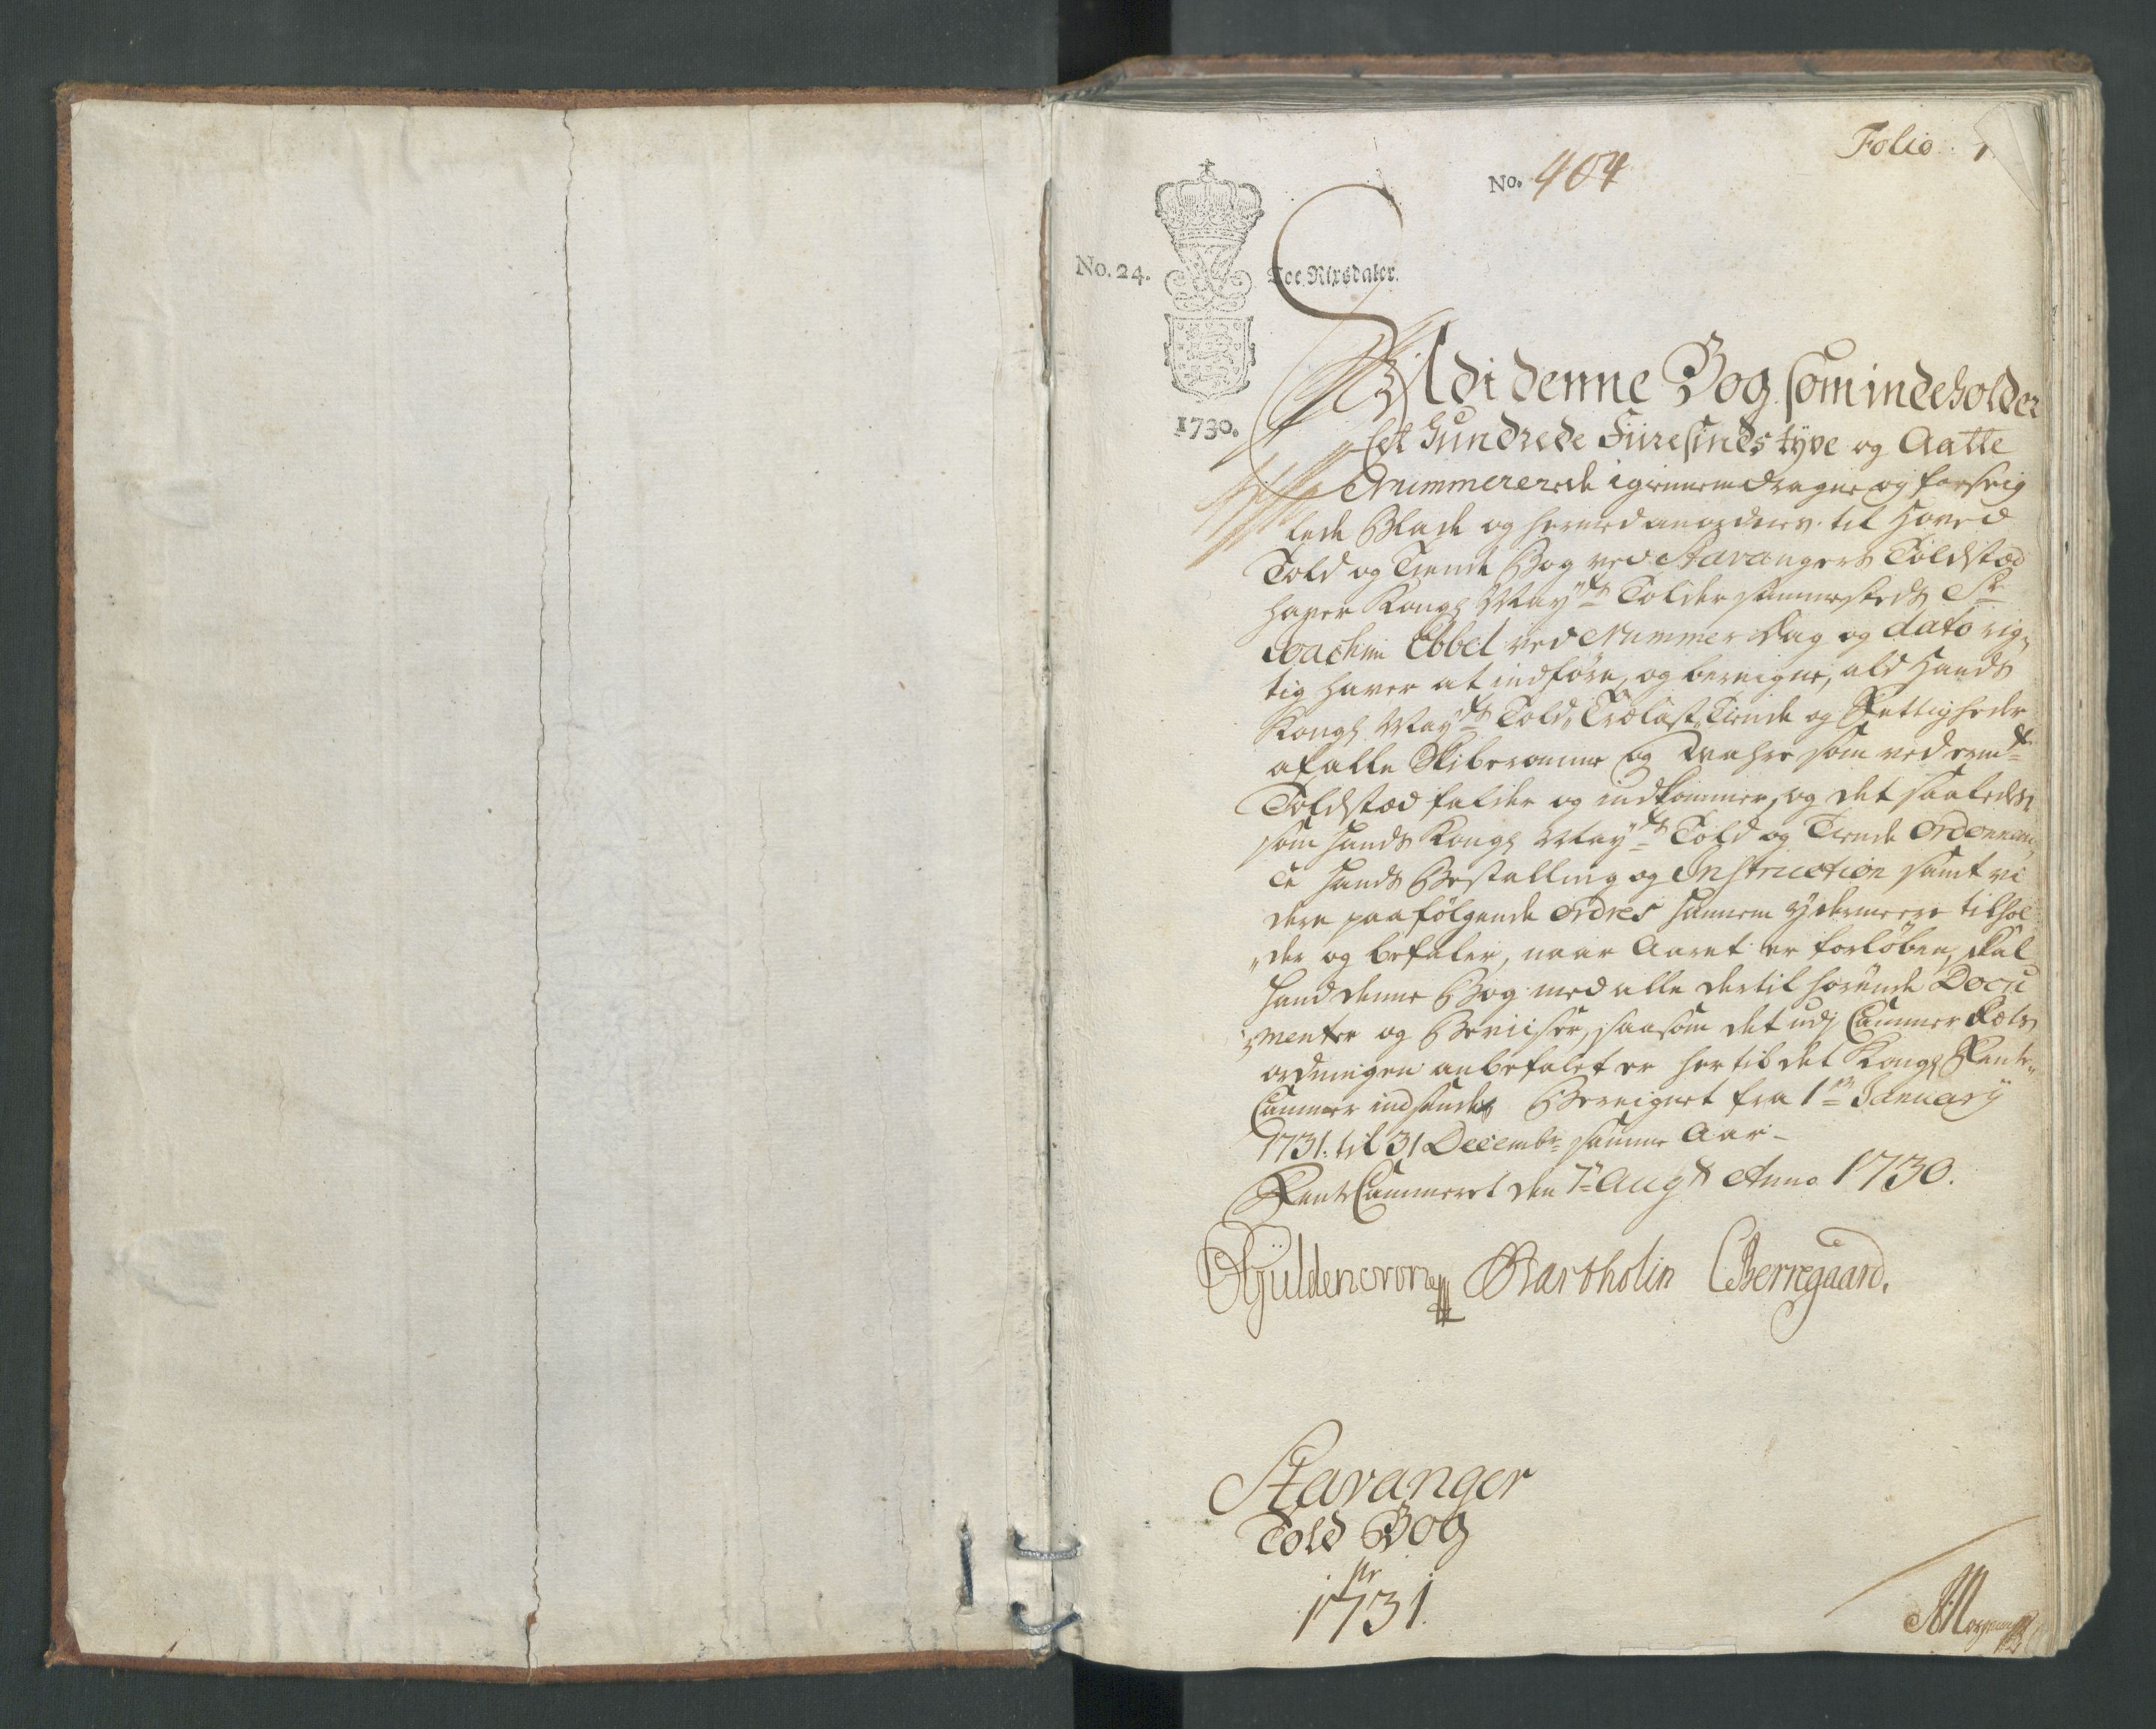 Folio. 1.
No. 404
No. 24. Toe Rixsdaler.
1730.
Udi denne Bog som indeholder
Eet Hundrede Fiiresinds tyve og Aatte
Nummererede igiennemdragne og forseig
lede Blade og hermed anordnes til Hoved
Told og Tiende Bog ved Stavangers Toldsted
haver Kongl May:ts Tolder sammesteds Sr
Joachim Ebbel ved Nummer Dag og dato rig„
tig haver at indføre, og bereigne, ald Hands
Kongl May:ts Told, Trælast, Tiende og Rettigheder
af alle Skiberomme og Wahre som ved ermte
Toldsted falder og indkommer, og det saaledes
som Hands Kongl May:ts Told og Tiende Ordonnan„
ce Hands Bestalling og Instruction samt vi
dere paafølgende Ordres hannem ydermeere tilhol
„der og befaler, naar Aaret er forløben, skal
Hand denne Bog med alle dertil hørende Docu
„menter og Beviiser, saasom det udj Cammer Rets
ordningen anbefalet er hertil det Kongl Rente„
Cammer indsende Bereignet fra 1ste January
1731. til 31 Decembr samme Aar.
Rente Cammeret den 7de Augt Anno 1730.
Gÿldencrone Bartholin CBerregaard.
Stavanger
Told Bog
pr
1731.